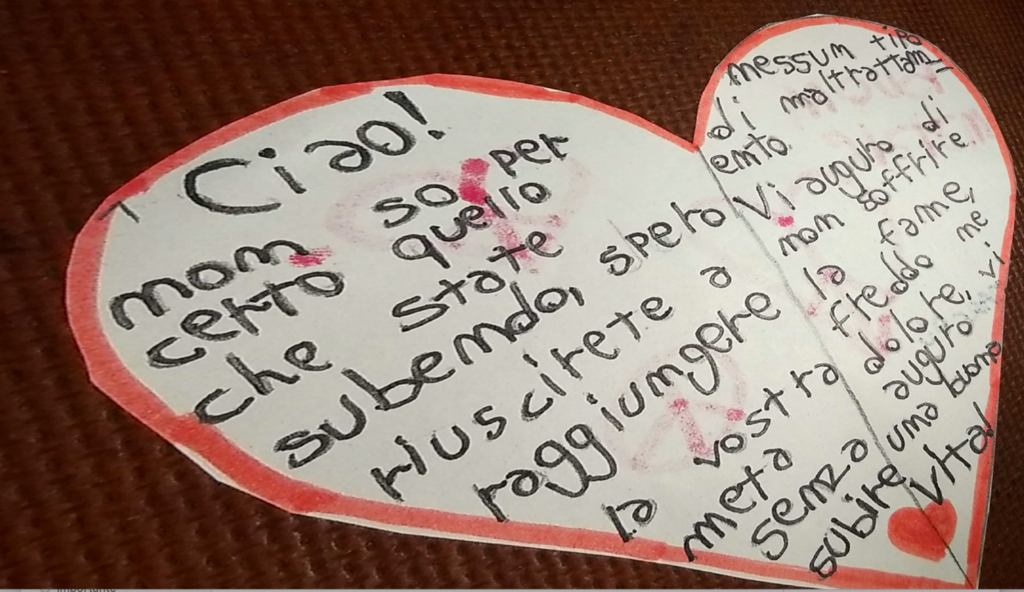 Ciao!
non so per
certo quello
che state
subendo, spero
riuscirete a
raggiungere
la vostra
meta
senza
subire
nessun tipo
di maltrattam_
ento.
Vi auguro di
non soffrire
la fame,
freddo ne
dolore, vi
auguro
una buona
vita!
importante